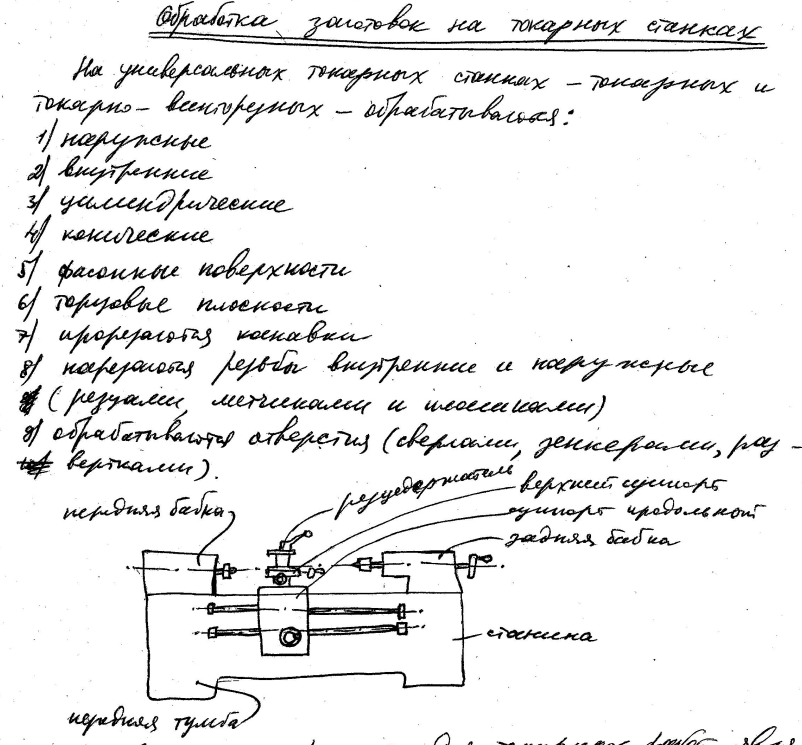 Обработка заготовок на токарных станках
На универсальных токарных станках – токарных и
токарно – винторезных – обрабатываются:
1) наружные
2) внутренние
3) цилиндрические
4) конические
5) фасонные поверхности
6) торцовые плоскости
7) прорезаются канавки
8) нарезаются резьбы внутренние и наружные
(резцами, метчиками и плашками)
9) обрабатываются отверстия (сверлами, зенкерами, раз-
вертками).
резцедержатель
верхний суппорт
передняя бабка
суппорт продольный
задняя бабка
станина
передняя тумба